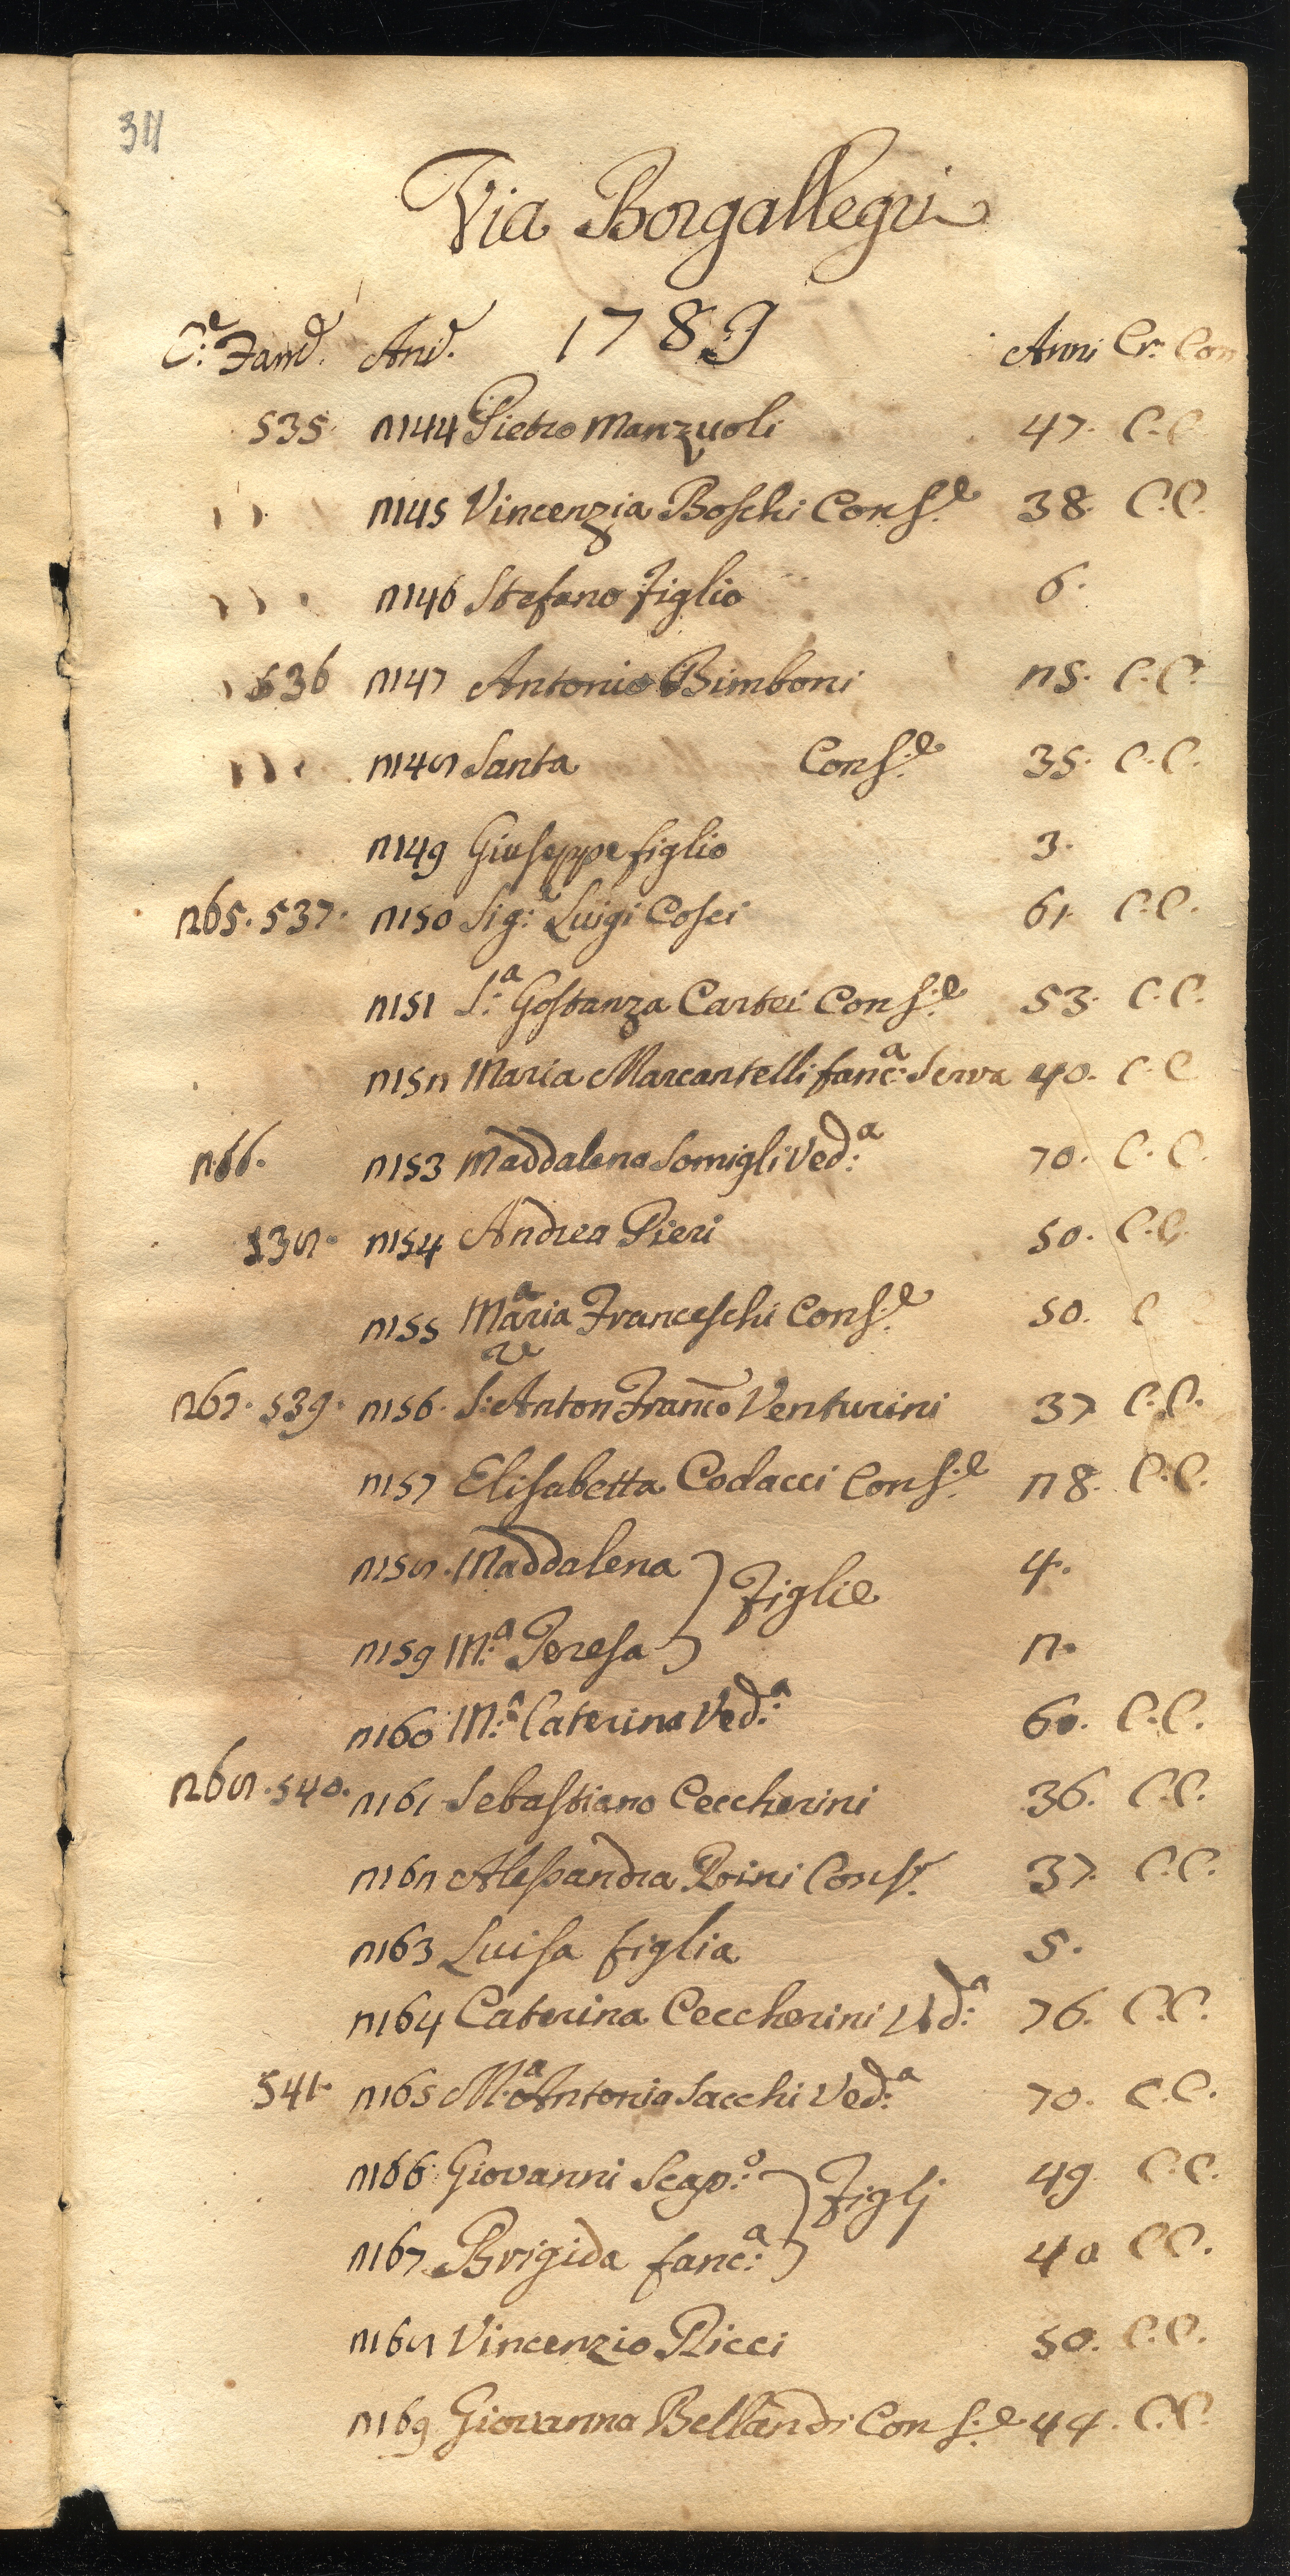 Via Borgallegri
C:e Fam: Ani: 1789 Anni Cr: Com
535 2144 Pietro Manzuoli 47. C.C.
2145 Vincenzia Boschi Cons:e 38. C.C.
2146 Stefano figlio 6.
536 2147 Antonio Bimboni 25. C.C.
2148 Santa Cons:e 35. C.C.
2149 Giuseppe figlio 3.
265. 537. 2150 Sig:e Luigi Cosci 61. C.C.
2151 S:a Gostanza Cartei Cons:e 53. C.C.
2152 Maria Marcantelli fanc:a Serva 40. C.C
266. 2153 Maddalena Somigli Ved:a 70. C.C.
538. 2154 Andrea Pieri 50. C.C.
2155 Maria Franceschi Cons:e 50. C
267. 539. 2156. S:re Anton Franco Venturini 37 C.C.
2157 Elisabetta Codacci Cons:e 28. C.C.
2158. Maddalena } Figlie 4.
2159 M:a Teresa 2.
2160 M:a Caterina Ved:a 60. C.C.
268. 540. 2161 Sebastiano Ceccherini 36. C.C.
2162 Alessandra Poini Cons:e 37. C.C.
2163 Luisa figlia 5.
2164 Caterina Ceccherini Ved:a 76. C.C.
541. 2165 M:a Antonia Sacchi Ved:a 70. C.C.
2166 Giovanni Scap:o } Figlj 49. C.C.
2167 Brigida fanc:a 40 C.C.
2168 Vincenzio Ricci 50. C.C.
2169 Giovanna Bellandi Cons:e 44. C.C.